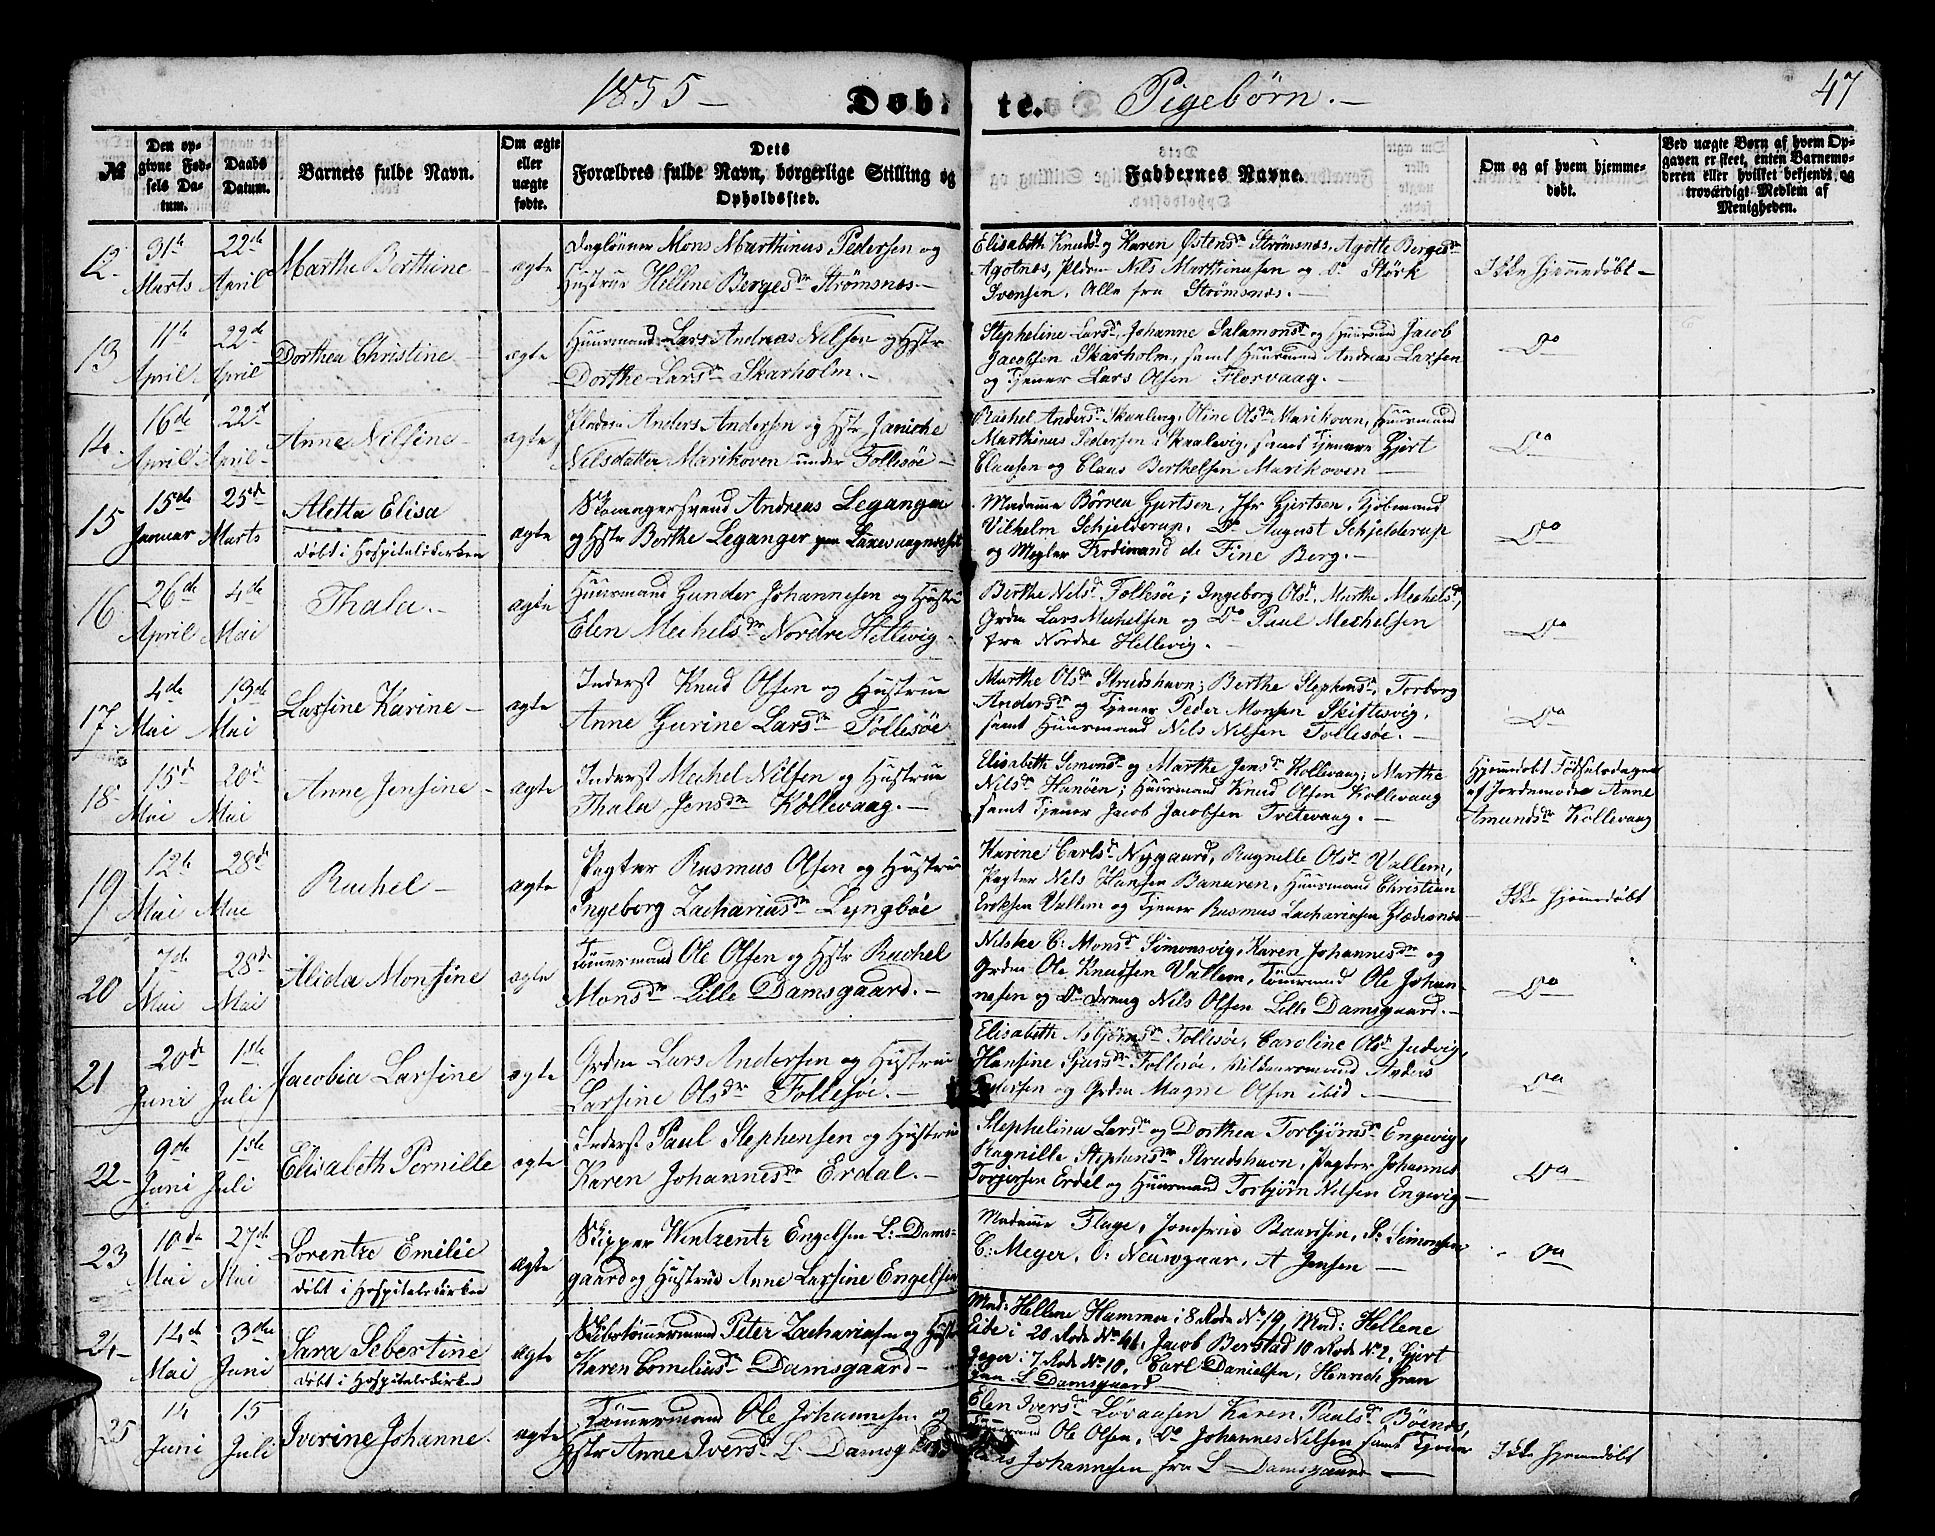 1855 - Døbte. Pigebørn. - 47
№
Den opgivne Fødsels Datum.
Daabs Datum.
Barnets fulde Navn.
Om ægte eller uægte fødte.
Dets Forældres fulde Navn, borgerlige Stilling og Opholdssted.
Faddernes Navne.
Om og af hvem hjemmedøbt.
Ved uægte Børn af hvem Opgaven er skeet, enten Barnemoderen eller hvilket bekjendt og troværdigt Medlem af Menigheden.
12. 31te Marts 22de April Marthe Berthine - ægte
Daglønner Mons Marthinus Pedersen og
Hustrue Hellene Bergesdr Strømsnes. -
Elisabeth Knudsd og Karen Østensdr Strømsnes, Agotte Bergesdr
Agotnes, Pldm Nils Marthinusen og Do Størk
Ivensen, Alle fra Strømsnes. -
Ikke hjemmedøbt -
13 11te April 22de April Dorthea Christine - ægte
Huusmand Lars Andreas Nilsen og Hstr
Dorthe Larsdr Skarholm. -
Stepheline Larsd, Johanne Salamonsd og Huusmand Jacob
Jacobsen Skarholm, samt Huusmand Andreas Larsen
og Tjener Lars Olsen Florvaag. -
Do
14. 16de April 22de April Anne Nilsine - ægte
Anders Andersen og Hstr Janiche
Nilsdatter Marikoven under Follesøe -
Rachel Andersdr Skaalevig, Oline Olsdr Marikoven, Huusmand
Marthinus Pedersen i Skaalevig, samt Tjenere Gjert
Clausen og Claus Berthelsen Marikoven -
Do
15 15de Januar 25de Marts Aletta Elisa ægte
døbt i Hospitalskirken
Skomagersvend Andreas Leganger
og Hstr Berthe Leganger paa Laxevaagnesset
Madame Børrea Gjertsen, Jfr Gjertsen, Kjøbmand
Vilhelm Schjelderup, Do August Schjelderup
og Megler Ferdinand de Fine Berg. -
Do
16 26de April 4de Mai Thala. - ægte
Huusmand Gunder Johannesen og Hustru
Elen Mechelsdr Nordre Hellevig -
Berthe Nilsd Follesøe; Ingeborg Olsd, Marthe Mechelsd,
Grdm Lars Mechelsen og Do Paul Mechelsen
fra Nordre Hellevig. -
Do
17. 4de Mai 13de Mai Larsine Karine - ægte
Inderst Knud Olsen og Hustrue
Anne Gurine Larsdr Follesøe
Marthe Olsdr Strudshavn; Berthe Stephensdr, Torborg
Andersdr og Tjener Peder Monsen Skiftesvig,
samt Huusmand Nils Nilsen Follesøe. -
Do
18 15d Mai 20d Mai Anne Jensine - ægte
Inderst Mechel Nilsen og Hustrue
Thala Jensdr Kollevaag. -
Elisabeth Simonsd og Marthe Jensd Kollevaag; Marthe
Nilsd Hanøen; Huusmand Knud Olsen Kollevaag
samt Tjener Jacob Jacobsen Tvetevaag. -
Hjemmedøbt Fødselsdagen
af Jordemoder Anne
Amundsdr Kollevaag
19 12te Mai 28de Mai Rachel - ægte
Pagter Rasmus Olsen og Hustrue
Ingeborg Zachariasdr Lyngbøe
Karine Carlsd Nygaard, Ragnille Olsdr Vallem,
Pagter Nils Hansen Banuren, Huusmand Christian
Eriksen Vallem og Tjener Rasmus Zachariasen
Ikke hjemmedøbt
20 7de Mai 28de Mai Alida Monsine ægte
Tømmermand Ole Olsen og Hstr Rachel
Monsdr Lille Damsgaard. -
Nilske C: Monsd Simonsvig, Karen Johannesdr og
Grdm Ole Knudsen Vallem, Tømmermd Ole Johan-
nesen og Do Dreng Nils Olsen Lille Damsgaard. -
Do
21 20de Juni 1ste Juli Jacobia Larsine ægte
Grdm Lars Andersen og Hustrue
Larsine Olsdr Follesøe. -
Elisabeth Asbjørnsdr Follesøe, Caroline Olsd Judvig,
Hansine Sjursdr Follesøe, Anders
Petersen og Grdm Magne Olsen ibid -
Do
22 - 9de Juni 1ste Juli Elisabeth Pernille ægte
Inderst Paul Stephensen og Hustrue
Karen Johannesdr Erdal. -
Stephelina Larsd og Dorthea Torbjørnsd Engevig,
Ragnille Stephensdr Strudshavn, Pagter Johannes
Torgersen Erdal og Huusmand Torbjørn Nilsen Engevig -
Do
23 10de Mai 27de Mai Lorentze Emilie ægte
døbt i Hospitalskirken
Skipper Wentzentz Engelsen L: Dams-
gaard og Hustrue Anne Larsine Engelsen
Madame Flage, Jomfrue Baardsen, S: Simonsen
C: Meyer, O: Neumgaar, A Jensen -
Do
24 - 14de Mai 3die Juni Sara Sebertine ægte
døbt i Hospitalskirken
Skibstømmermand Peter Zachariasen og Hustr
Karen Corneliusdr Damsgaard -
Mad: Hellene Hammer i 8 Rode No 19, Mad: Hellene
Eide i 20 Rode No 46, Jacob Berstad 10 Rode No 2, Gjert
Geger i 7 Rode No 10, Carl Danielsen, Henrich Gran
paa L Damsgaard -
25 14 Juni 15 Juli Iverine Johanne. ægte
Tømmermand Ole Johannesen og
Hstr Anne Iversd L. Damsgaard
Elen Iversdr Løvaasen Karen Paulsdr Bønes,
Ole Olsen, Do Johannes Nilsen samt Tjener
Johannesen fra L Damsgaard -
Ikke hjemmedøbt